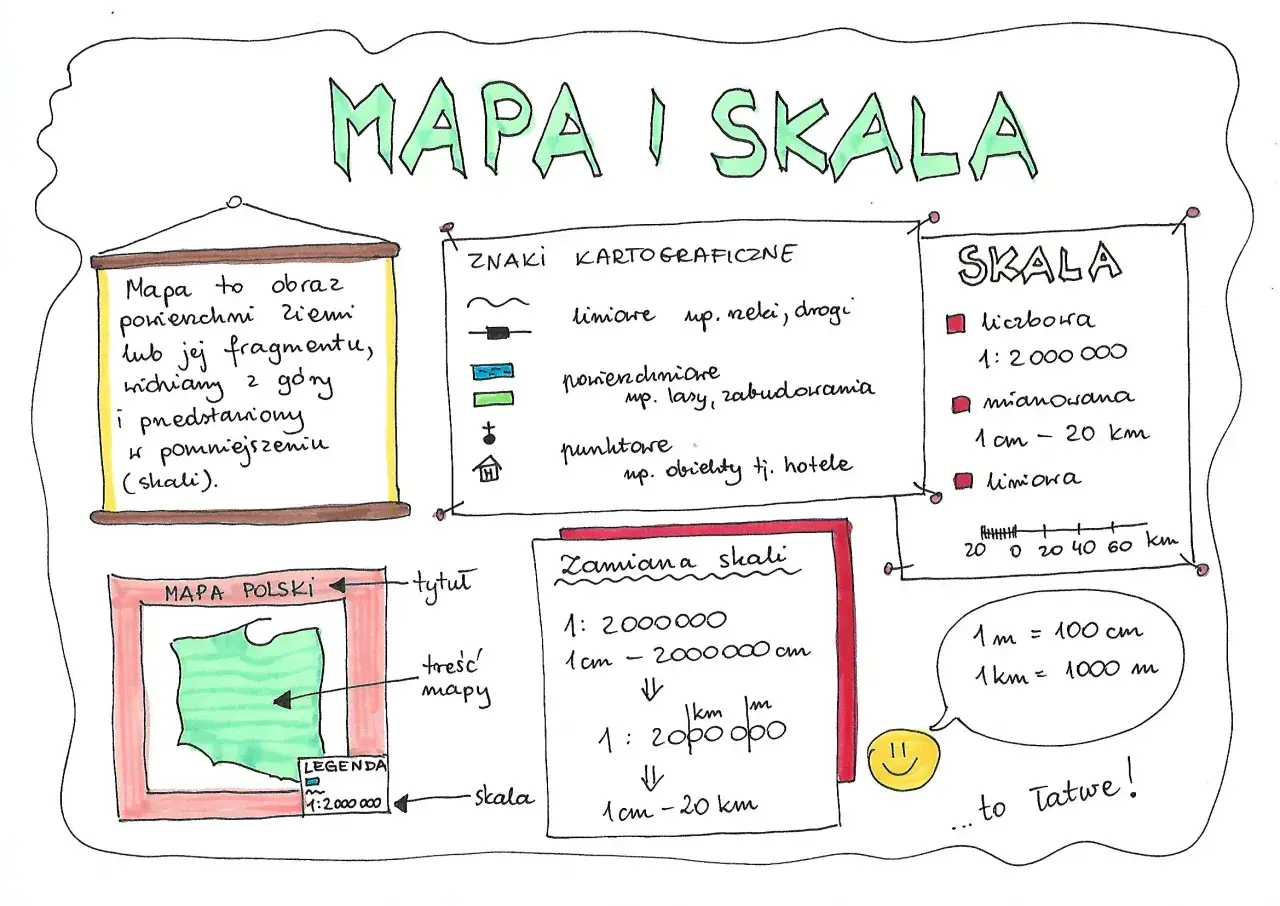 MAPA I SKALA
Mapa to obraz
powierzchni Ziemi
lub jej fragmentu,
widziany z góry
i przedstawiony
w pomniejszeniu
(skali).
ZNAKI KARTOGRAFICZNE
liniowe np. rzeki, drogi
powierzchniowe
np. lasy, zabudowania
punktowe
np. obiekty tj. hotele
H
SKALA
liczbowa
1: 2 000 000
mianowana
1 cm - 20 km
liniowa
20 0 20 40 60 km
MAPA POLSKI
tytuł
treść
mapy
LEGENDA
1:2 000 000
skala
Zamiana skali
1: 2000000
1cm - 2000000 cm
km m
1 : 2000000
1cm - 20 km
1m = 100 cm
1km = 1000 m
...to łatwe!